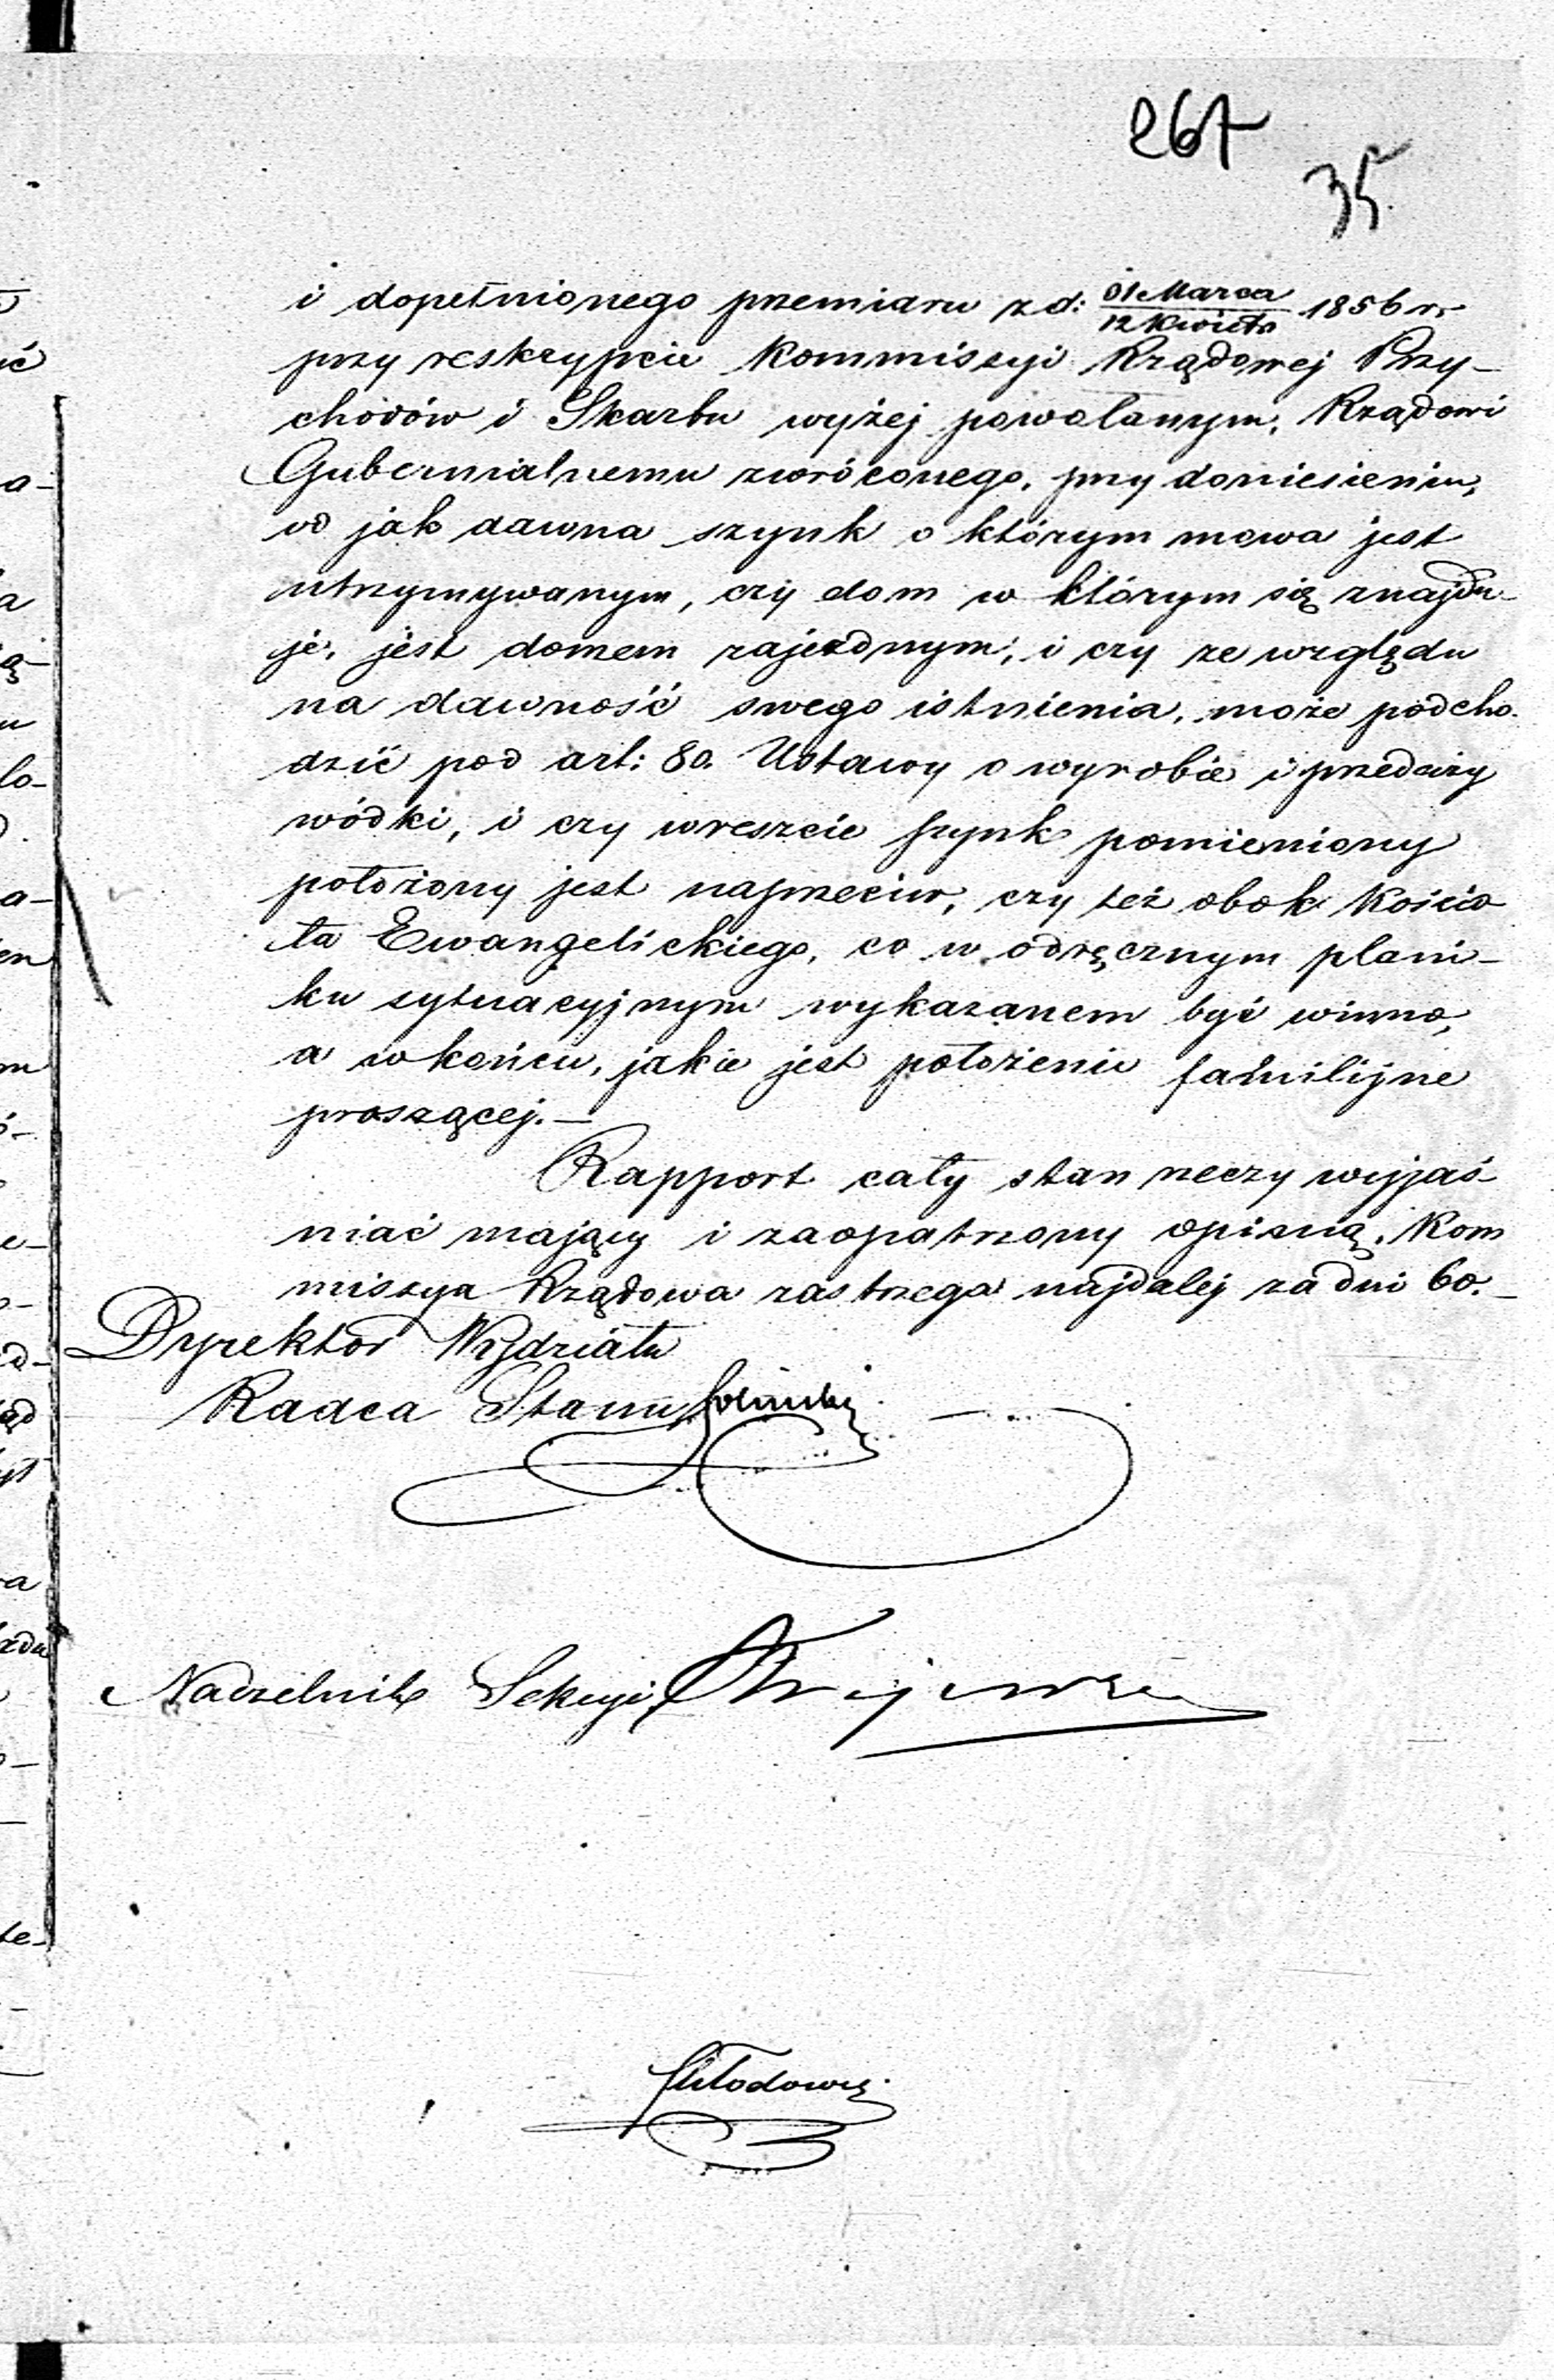 267
35.
i dopełnionego przemiaru z d: 31 Marca / 12 Kwietn 1856 r.
przy reskrypcie Kommissyi Rządowej Przy-
chodów i Skarbu wyżej powołanym, Rządowi
Gubernialnemu zwróconego, przy doniesieniu,
od jak dawna szynk o którym mowa jest
utrzymywanym, czy dom w którym się znajdu-
je, jest domem zajezdnym, i czy ze względu
na dawność swego istnienia, może podcho-
dzić pod art: 80. Ustawy o wyrobie i przedaży
wódki, i czy wreszcie szynk pomieniony
położony jest naprzeciw, czy też obok Kościo
ła Ewangelickiego, co w odręcznym plani-
ku sytuacyjnym wykazanem być winno,
a w końcu, jakie jest położenie familijne
proszącej.—
Rapport cały stan rzeczy wyjaś-
niać mający i zaopatrzony opinią, Kom
missya Rządowa zastrzega najdalej za dni 60.—
Dyrektor Wydziału
Radca Stanu
Naczelnik Sekcyi